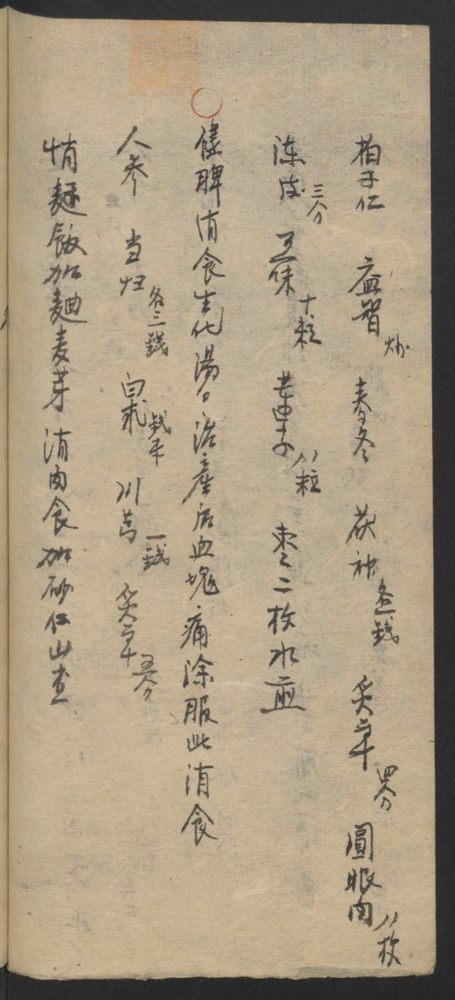 柏子仁 益智炒 麦冬 茯神各一錢 炙草四分 圓眼肉八枚
陳皮三分 五味十粒 蓮子八粒 枣二枚水煎
健脾消食生化湯 治產后血塊痛除服此消食
人參 当归各三錢 白朮錢半 川芎一錢 炙草五分
消麵飯加麯麦芽 消肉食加砂仁山查